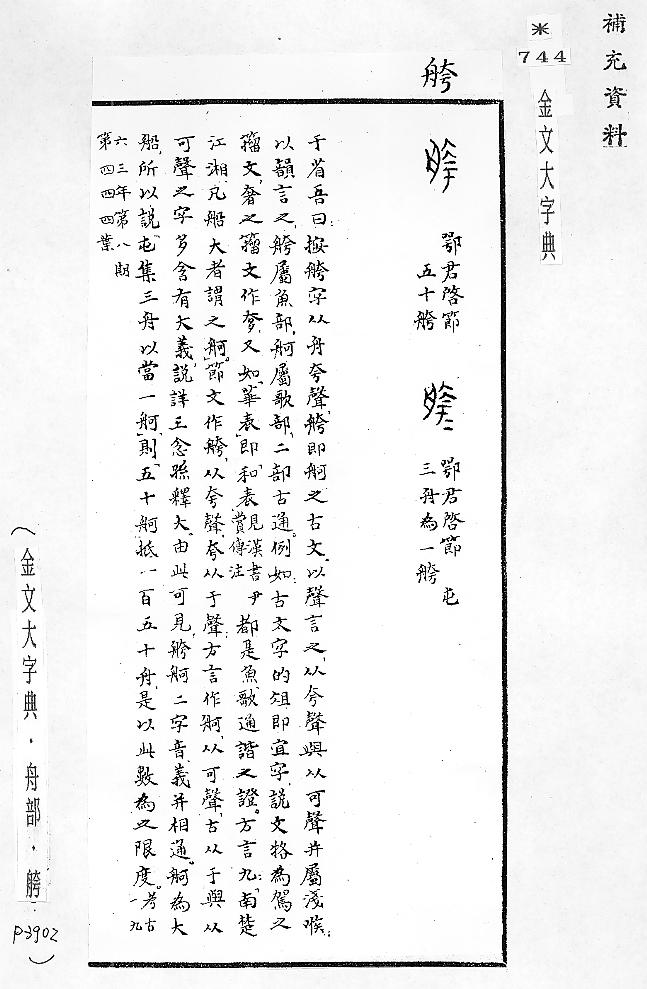 補充資料
※
744
金文大字典
舿
鄂君啓節
五十舿
鄂君啓節 屯
三舟為一舿
于省吾曰：按舿字从舟夸聲，舿即舸之古文。以聲言之，从夸聲與从可聲并屬淺喉；
以韻言之，舿屬魚部，舸屬歌部，二部古通。例如：古文字的俎即宜字，說文㹊為駕之
籀文，奢之籀文作奓，又如「華表」即「和表」見漢書尹賞傳注都是魚歌通諧之證。方言九：「南楚
江湘，凡船大者謂之舸。」節文作舿，从夸聲，夸从于聲；方言作舸，从可聲，古从于與从
可聲之字多含有大義，說詳王念孫釋大。由此可見，舿舸二字音義并相通。舸為大
船，所以說「屯集三舟以當一舸」，則「五十舸」抵一百五十舟，是以此數為之限度。考古一九
六三年第八期
第四四四業
（金文大字典·舟部·舿
P3902）